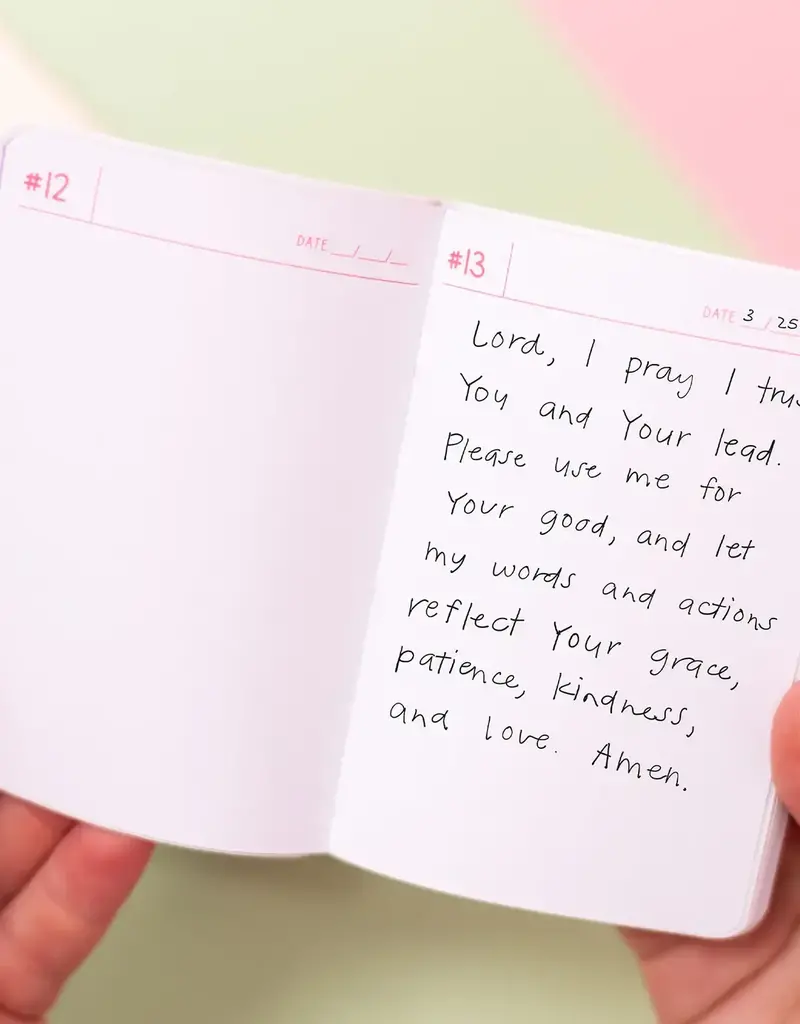 #12
DATE __/__/__
#13
DATE 3 / 25
Lord, I pray I trus
You and Your lead.
Please use me for
Your good, and let
my words and actions
reflect Your grace,
patience, kindness,
and love. Amen.